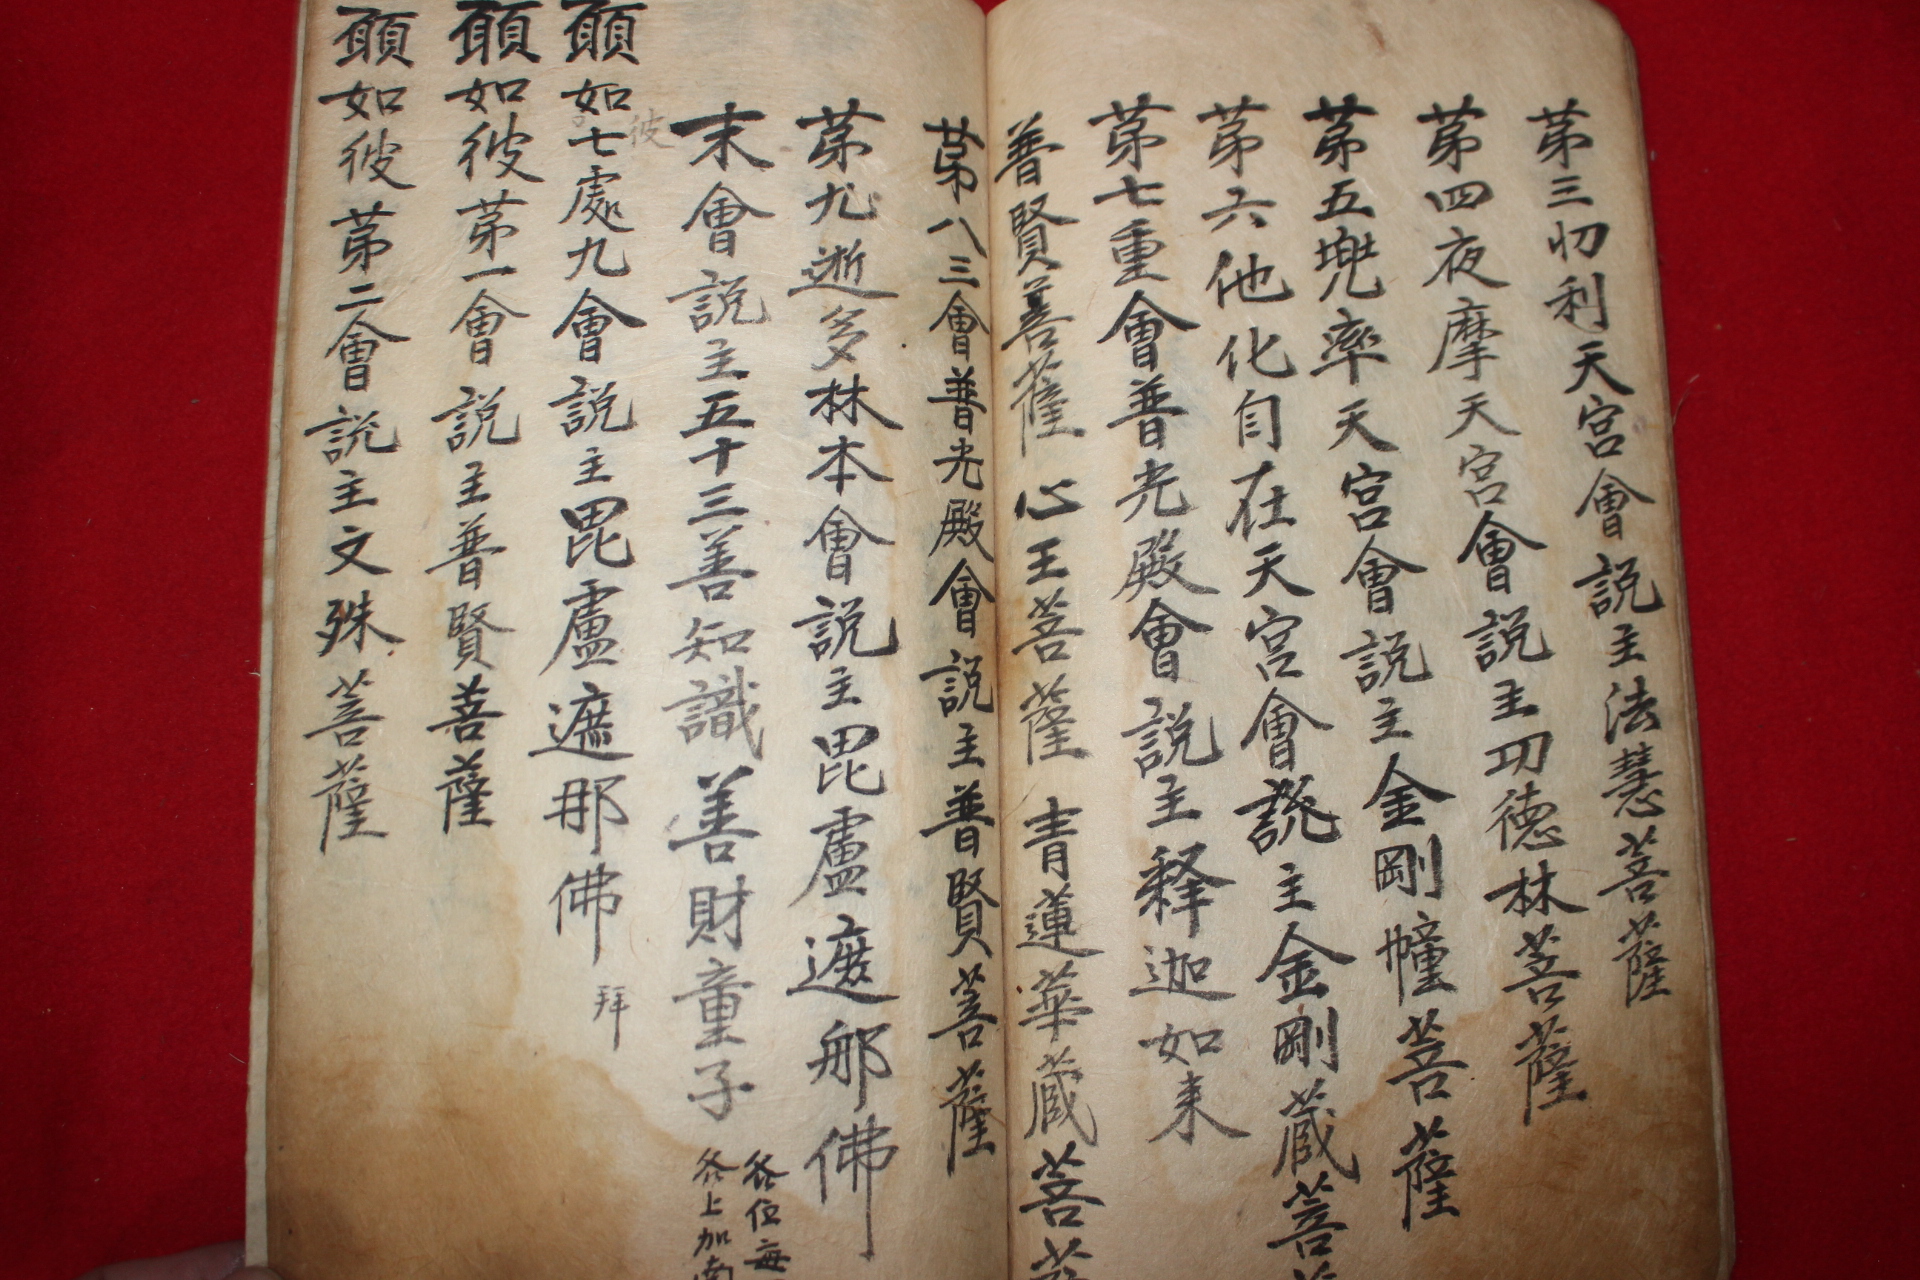 苐三忉利天宮會說主法慧菩薩
苐四夜摩天宮會說主功德林菩薩
苐五兠率天宮會說主金剛幢菩薩
苐六他化自在天宮會說主金剛蔵菩
苐七重會普光殿會說主釋迦如来
普賢菩薩 心王菩薩 青蓮華蔵菩
苐八三會普光殿會說主普賢菩薩
苐九逝多林本會說主毘盧遮那佛
末會說主五十三善知識善財童子
各位每
各上加南
願如彼七處九會說主毘盧遮那佛 拜
願如彼苐一會說主普賢菩薩
願如彼苐二會說主文殊菩薩